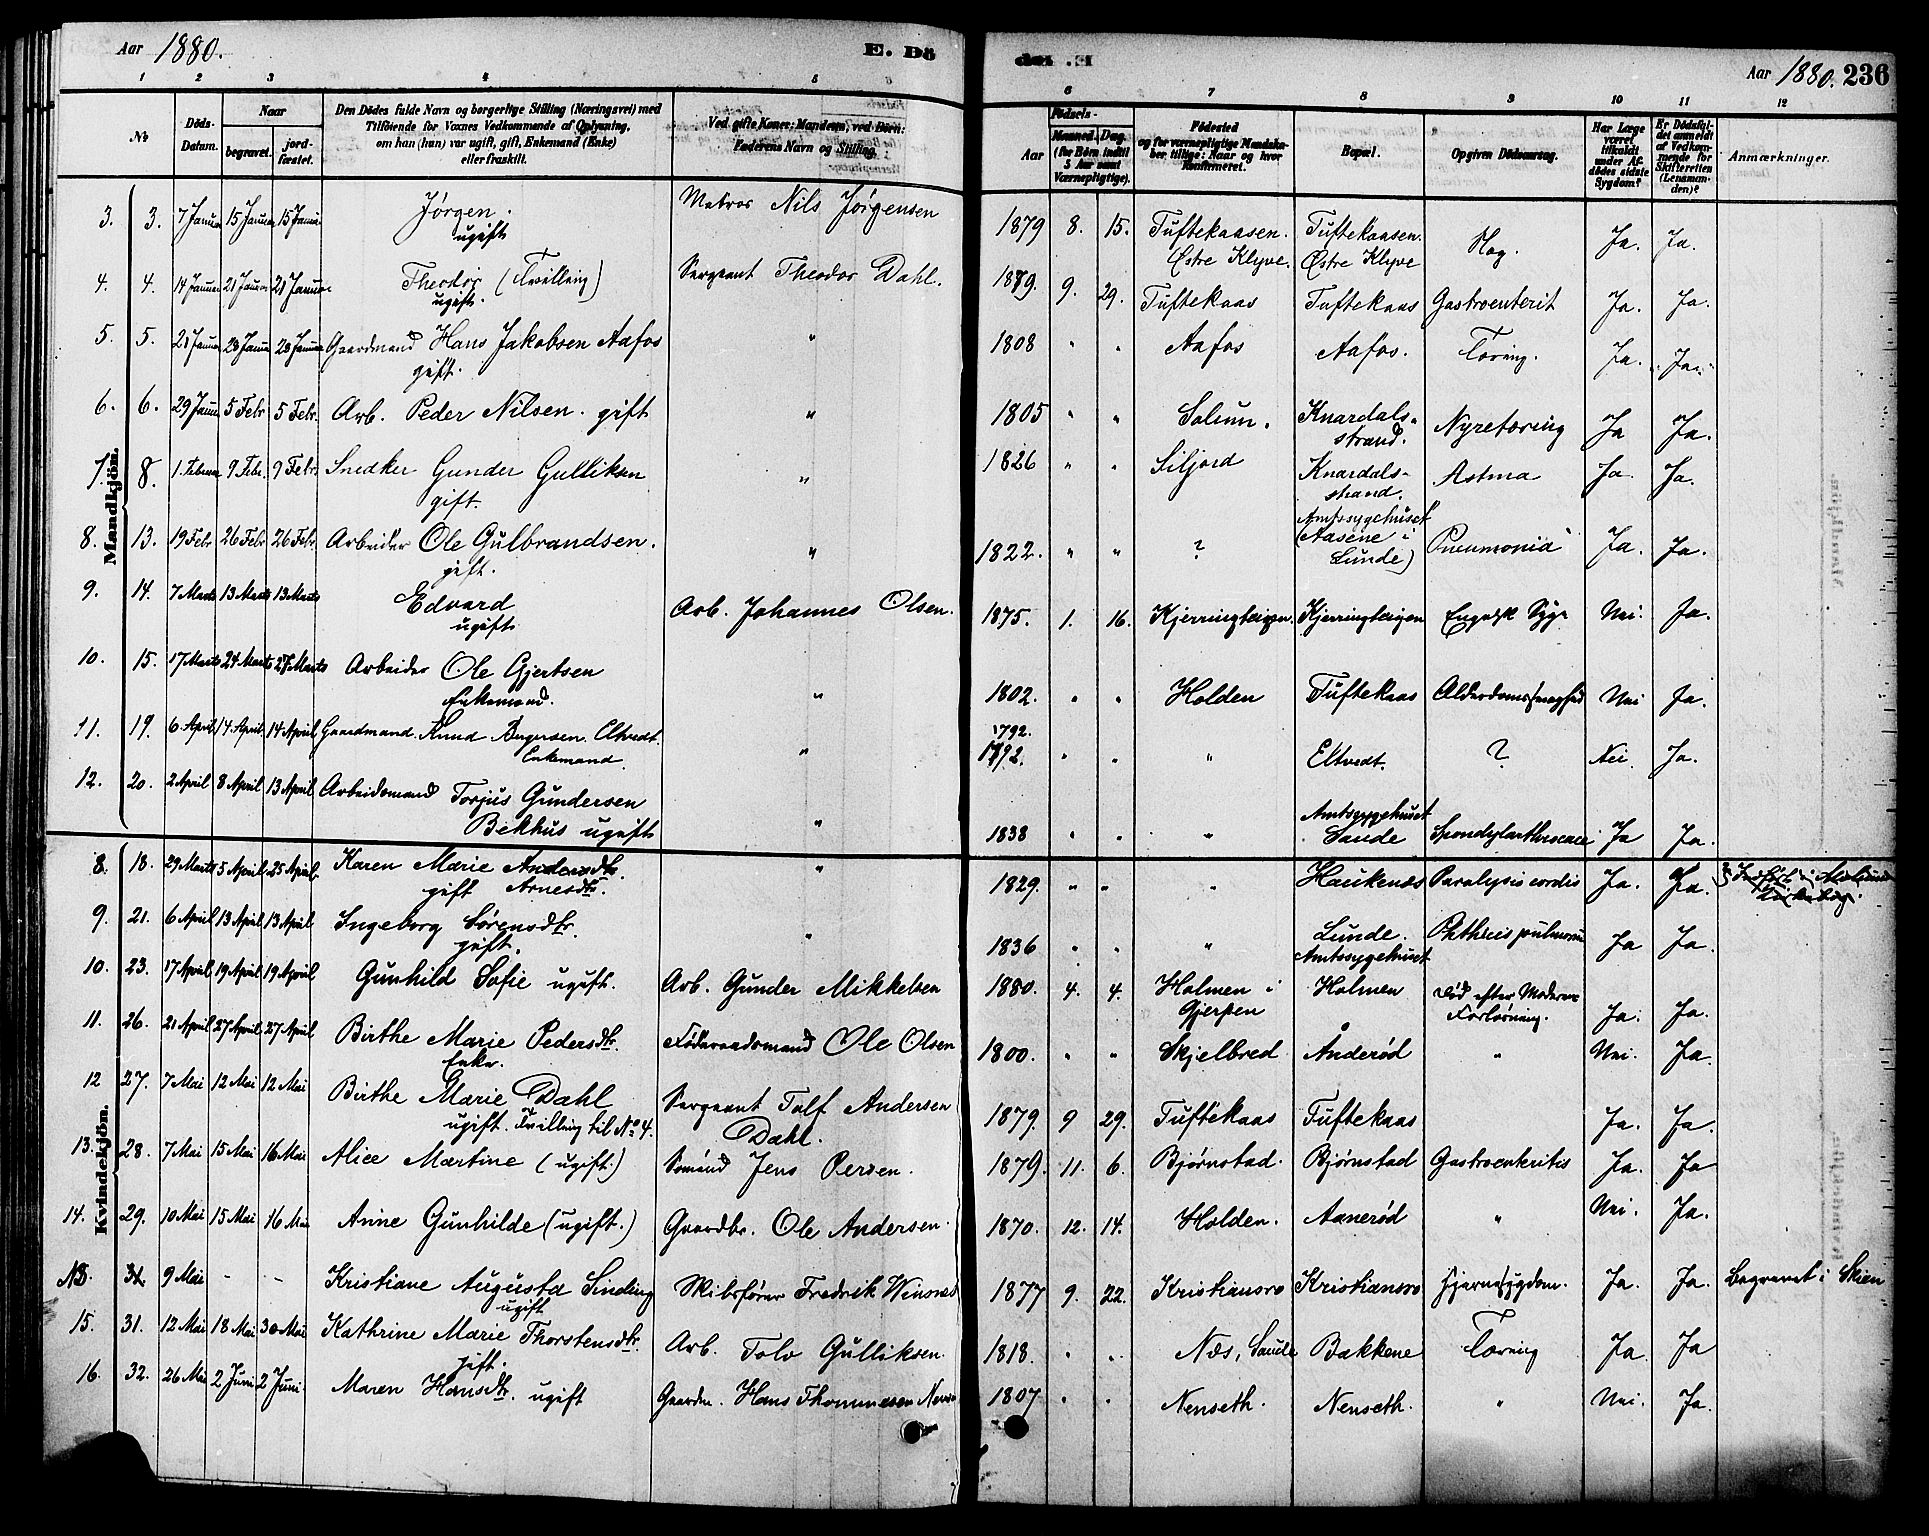 Aar 1880. E. Dö
1 2 3 4 5
No Döds-Datum. Naar begravet. jordfæstet. Den Dödes fulde Navn og borgerlige Stilling (Næringsvei) med Tilföiende for Voxnes Vedkommende af Oplysning, om han (hun) var ugift, gift, Enkemand (Enke) eller fraskilt. Ved gifte Koner: Mandens, ved Börn: Faderens Navn og Stilling.
Aar 1880. 236
6 7 8 9 10 11 12
Födsels- Aar Maaned. Dag. (for Börn indtil 5 Aar samt Værnepligtige). Födested og for værnepligtige Mandskaber tillige: Naar og hvor Konfirmeret. Bopæl. Opgiven Dödsaarsag. Har Læge været tilkaldt under Afdödes sidste Sygdom? Er Dödsfaldet anmeldt af Vedkommende for Skifteretten (Lensmanden)? Anmærkninger.
Mandkjön.
3. 3. 7 Januar 15 Januar 15 Januar Jørgen. ugift Matros Nils Jørgensen 1879 8. 15. Tuftekaasen. Østre Klyve. Tuftekaasen. Østre Klyve Ja. Ja.
4. 4. 14 Januar 21 Januar 21 Januar Theodor (Tvilling) ugift. Sergeant Theodor Dahl. 1879. 9. 29. Tuftekaas Tuftekaas Gastroenterit Ja. Ja.
5. 5. 21 Januar 28 Januar 28 Januar Gaardmand Hans Jakobsen Aafos gift. " 1808 " " Aafos Aafos. Tæring. Ja. Ja.
6. 6. 29 Januar 5 Febr 5 Febr. Arb. Peder Nilsen. gift " 1805 " " Solum. Knardalsstrand. Nyretæring Ja Ja.
7. 8. 1. Februar 9 Febr. 9 Febr. Snedker Gunder Gulliksen gift. " 1826 " " Siljord Knardalsstrand. Astma Ja. Ja.
8. 13. 19 Febr 26 Febr 26 Febr. Arbeider Ole Gulbrandsen. gift. " 1822. " " ? Amtssygehuset (Aasene i Lunde) Pneumonia Ja. Ja.
9. 14. 7 Marts 13 Marts 13 Marts Edvard ugift Arb. Johannes Olsen. 1875. 1. 16. Kjerringteigen. Kjerringteigen Engelsk Syge Nei. Ja.
10. 15. 17 Marts 24 Marts 27 Marts Arbeider Ole Gjertsen Enkemand. " 1802. " " Holden Tuftekaas Alderdomssvaghed Nei Ja.
11. 19. 6 April 14 April 14 April Gaardmand. Knud Eltvedt. Enkemand. " 1792. 1792. " " " Eltvedt. ? Nei. Ja.
12. 20. 2 April 8 April 13 April Arbeidsmand Torjus Gundersen Bekhus ugift " 1838 " " " Amtssygehuset Saude Ja Ja.
Kvindekjön.
8. 18. 29 Marts 5 April 25 April. Karen Marie Andersdtr. gift Arnesdtr. " 1829. " " " Haukenæs Paralysis cordis Ja. Ja.
9. 21. 6 April 13 April 13 April Ingeborg Sørensdtr. gift. " 1836 " " " Lunde. Amtssygehuset Phthisis pulmonum Ja Ja.
10. 23. 17 April 19 April 19 April Gunhild Sofie ugift. Arb. Gunder Mikkelsen 1880. 4. 4. Holmen i Gjerpen Holmen Død efter Moderens Forløsning. Ja. Ja.
11. 26. 21 April 27 April 27 April Birthe Marie Pedersdtr. Enke. Føderaadsmand Ole Olsen 1800. " " Skjelbred Ånderød " Nei. Ja.
12 27. 7 Mai 12 Mai 12 Mai Birthe Marie Dahl ugift. Tvilling til No 4. Sergeant Tolf Andersen Dahl. 1879. 9 29. Tuftekaas Tuftekaas Ja. Ja.
13. 28. 7 Mai 15 Mai 16 Mai Alice Martine (ugift.) Sømand Jens Persen. 1879. 11. 6. Bjørnstad. Bjørnstad Gastroenteritis Ja. Ja
14. 29. 10 Mai 15 Mai 16 Mai Anne Gunhilde (ugift.) Gaardbr. Ole Andersen. 1870. 12. 14. Holden. Aanerød " Nei. Ja.
NB. 9 Mai - - Kristiane Augusta Sinding ugift Fredrik Winsnes 1877 9. 22. Kristiansro Kristiansro Hjernesygdom. Ja. Ja. Begravet i Skien
15. 31. 12 Mai 18 Mai 30 Mai Kathrine Marie Thorstensdtr. gift. Arb. Tolv Gulliksen. 1818. " " Næs, Saude Bakkene Tæring Ja Ja
16. 32. 26 Mai 2 Juni 2 Juni. Maren Hansdtr. ugift Gaardm. Hans Thommesen 1807 " " Nenseth. Nenseth. " Nei. Ja.